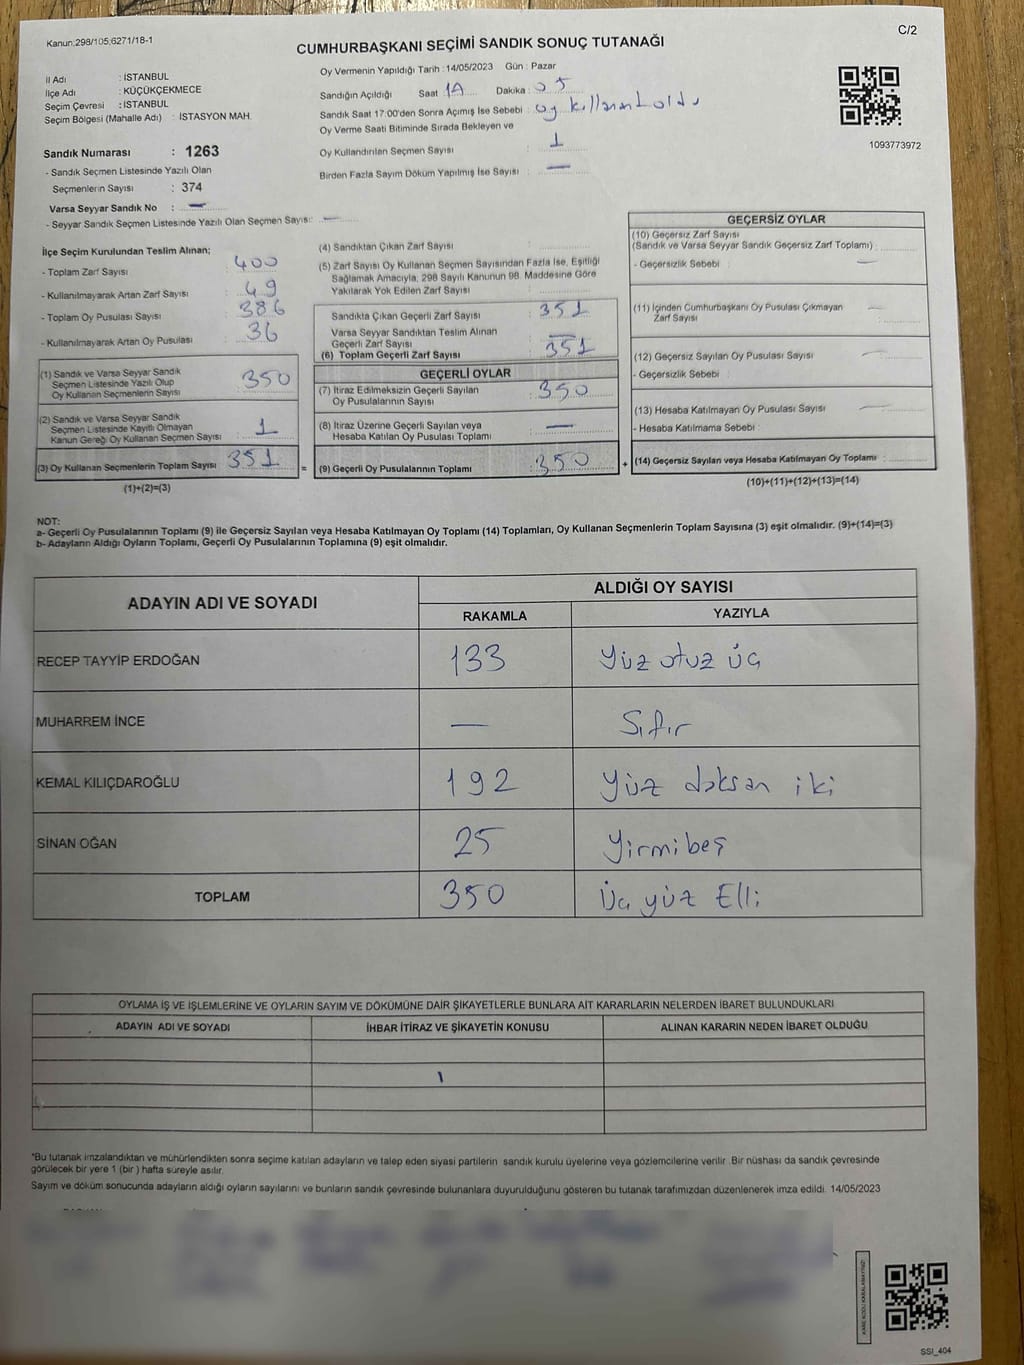 Kanun:298/105;6271/18-1
C/2
CUMHURBAŞKANI SEÇİMİ SANDIK SONUÇ TUTANAĞI
İl Adı : İSTANBUL
İlçe Adı : KÜÇÜKÇEKMECE
Seçim Çevresi : İSTANBUL
Seçim Bölgesi (Mahalle Adı) : İSTASYON MAH.
Sandık Numarası : 1263
- Sandık Seçmen Listesinde Yazılı Olan
Seçmenlerin Sayısı : 374
Varsa Seyyar Sandık No : —
- Seyyar Sandık Seçmen Listesinde Yazılı Olan Seçmen Sayısı: —
Oy Vermenin Yapıldığı Tarih : 14/05/2023 Gün : Pazar
Sandığın Açıldığı Saat Dakika : 05
Sandık Saat 17:00'den Sonra Açımış İse Sebebi : oy kullanan oldu
Oy Verme Saati Bitiminde Sırada Bekleyen ve
Oy Kullandırılan Seçmen Sayısı : 1
Birden Fazla Sayım Döküm Yapılmış İse Sayısı : —
1093773972
İlçe Seçim Kurulundan Teslim Alınan;
- Toplam Zarf Sayısı : 400
- Kullanılmayarak Artan Zarf Sayısı : 49
- Toplam Oy Pusulası Sayısı : 386
- Kullanılmayarak Artan Oy Pusulası : 36
(1) Sandık ve Varsa Seyyar Sandık
Seçmen Listesinde Yazılı Olup
Oy Kullanan Seçmenlerin Sayısı : 350
(2) Sandık ve Varsa Seyyar Sandık
Seçmen Listesinde Kayıtlı Olmayan
Kanun Gereği Oy Kullanan Seçmen Sayısı : 1
(3) Oy Kullanan Seçmenlerin Toplam Sayısı : 351
(1)+(2)=(3)
=
(4) Sandıktan Çıkan Zarf Sayısı :
(5) Zarf Sayısı Oy Kullanan Seçmen Sayısından Fazla İse, Eşitliği
Sağlamak Amacıyla; 298 Sayılı Kanunun 98. Maddesine Göre
Yakılarak Yok Edilen Zarf Sayısı :
Sandıkta Çıkan Geçerli Zarf Sayısı : 351
Varsa Seyyar Sandıktan Teslim Alınan
Geçerli Zarf Sayısı : —
(6) Toplam Geçerli Zarf Sayısı : 351
GEÇERLİ OYLAR
(7) İtiraz Edilmeksizin Geçerli Sayılan
Oy Pusulalarının Sayısı : 350
(8) İtiraz Üzerine Geçerli Sayılan veya
Hesaba Katılan Oy Pusulası Toplamı : —
(9) Geçerli Oy Pusulalarının Toplamı : 350
+
GEÇERSİZ OYLAR
(10) Geçersiz Zarf Sayısı
(Sandık ve Varsa Seyyar Sandık Geçersiz Zarf Toplamı) :
- Geçersizlik Sebebi : —
(11) İçinden Cumhurbaşkanı Oy Pusulası Çıkmayan
Zarf Sayısı : —
(12) Geçersiz Sayılan Oy Pusulası Sayısı : —
- Geçersizlik Sebebi :
(13) Hesaba Katılmayan Oy Pusulası Sayısı : —
- Hesaba Katılmama Sebebi :
(14) Geçersiz Sayılan veya Hesaba Katılmayan Oy Toplamı :
(10)+(11)+(12)+(13)=(14)
NOT:
a- Geçerli Oy Pusulalarının Toplamı (9) ile Geçersiz Sayılan veya Hesaba Katılmayan Oy Toplamı (14) Toplamları, Oy Kullanan Seçmenlerin Toplam Sayısına (3) eşit olmalıdır. (9)+(14)=(3)
b- Adayların Aldığı Oyların Toplamı, Geçerli Oy Pusulalarının Toplamına (9) eşit olmalıdır.
ADAYIN ADI VE SOYADI
ALDIĞI OY SAYISI
RAKAMLA YAZIYLA
RECEP TAYYİP ERDOĞAN 133 Yüz otuz üç
MUHARREM İNCE — Sıfır
KEMAL KILIÇDAROĞLU 192 Yüz doksan iki
SİNAN OĞAN 25 Yirmibeş
TOPLAM 350 Üç yüz Elli
OYLAMA İŞ VE İŞLEMLERİNE VE OYLARIN SAYIM VE DÖKÜMÜNE DAİR ŞİKAYETLERLE BUNLARA AİT KARARLARIN NELERDEN İBARET BULUNDUKLARI
ADAYIN ADI VE SOYADI İHBAR İTİRAZ VE ŞİKAYETİN KONUSU ALINAN KARARIN NEDEN İBARET OLDUĞU
*Bu tutanak imzalandıktan ve mühürlendikten sonra seçime katılan adayların ve talep eden siyasi partilerin sandık kurulu üyelerine veya gözlemcilerine verilir. Bir nüshası da sandık çevresinde
görülecek bir yere 1 (bir) hafta süreyle asılır.
Sayım ve döküm sonucunda adayların aldığı oyların sayılarını ve bunların sandık çevresinde bulunanlara duyurulduğunu gösteren bu tutanak tarafımızdan düzenlenerek imza edildi. 14/05/2023
KARE KODU KARALAMAYINIZ!
SSI_404